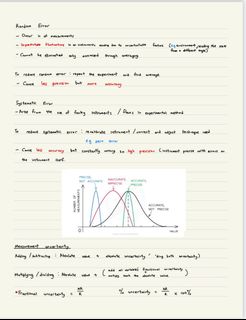 Random Error
- Occur in all measurements
- Unpredictable fluctuations in measurements readings due to uncontrollable factors (e.g environment, reading the scale from a different angle)
- Cannot be eliminated only reduced through averaging
To reduce random error : repeat the experiment and find average
- Cause less precision but more accuracy
Systematic Error
- Arise from the use of faulty instruments / flaws in experimental method
To reduce systematic error : recalibrate instrument / correct and adjust technique used
e.g. zero error
- Cause less accuracy but constantly wrong so high precision (instrument precise with errors on the instrument itself)
PRECISE, NOT ACCURATE
INACCURATE, IMPRECISE
ACCURATE, PRECISE
ACCURATE, NOT PRECISE
NUMBER OF MEASUREMENTS
VALUE
Measurement uncertainty
Adding / subtracting : Absolute value ± absolute uncertainty
Multiplying / dividing : Absolute value ±
Fractional uncertainty = ΔR / R
% uncertainty = ΔR / R × 100%